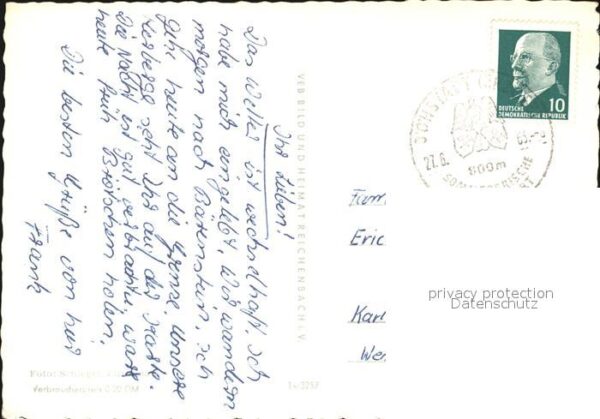 Ihr Lieben!
Das Wetter ist wechselhaft. Ich
habe mich eingelebt. Wir wandern
morgen nach Bärenstein. Ich
gehe heute an die Grenze. Unsere
Herberge seht Ihr auf der Karte.
Die Nacht ist gut verbracht
heute früh Brötchen holen.
Die besten Grüße von hier
Frank
VEB BILD UND HEIMAT REICHENBACH I. V.
Foto:
Verbraucherpreis 0,20 DM
DEUTSCHE
DEMOKRATISCHE REPUBLIK
10
JÖHSTADT
27.6.
809m
SOMMERFRISCHE
Fam
Eric
Karl
We
privacy protection
Datenschutz